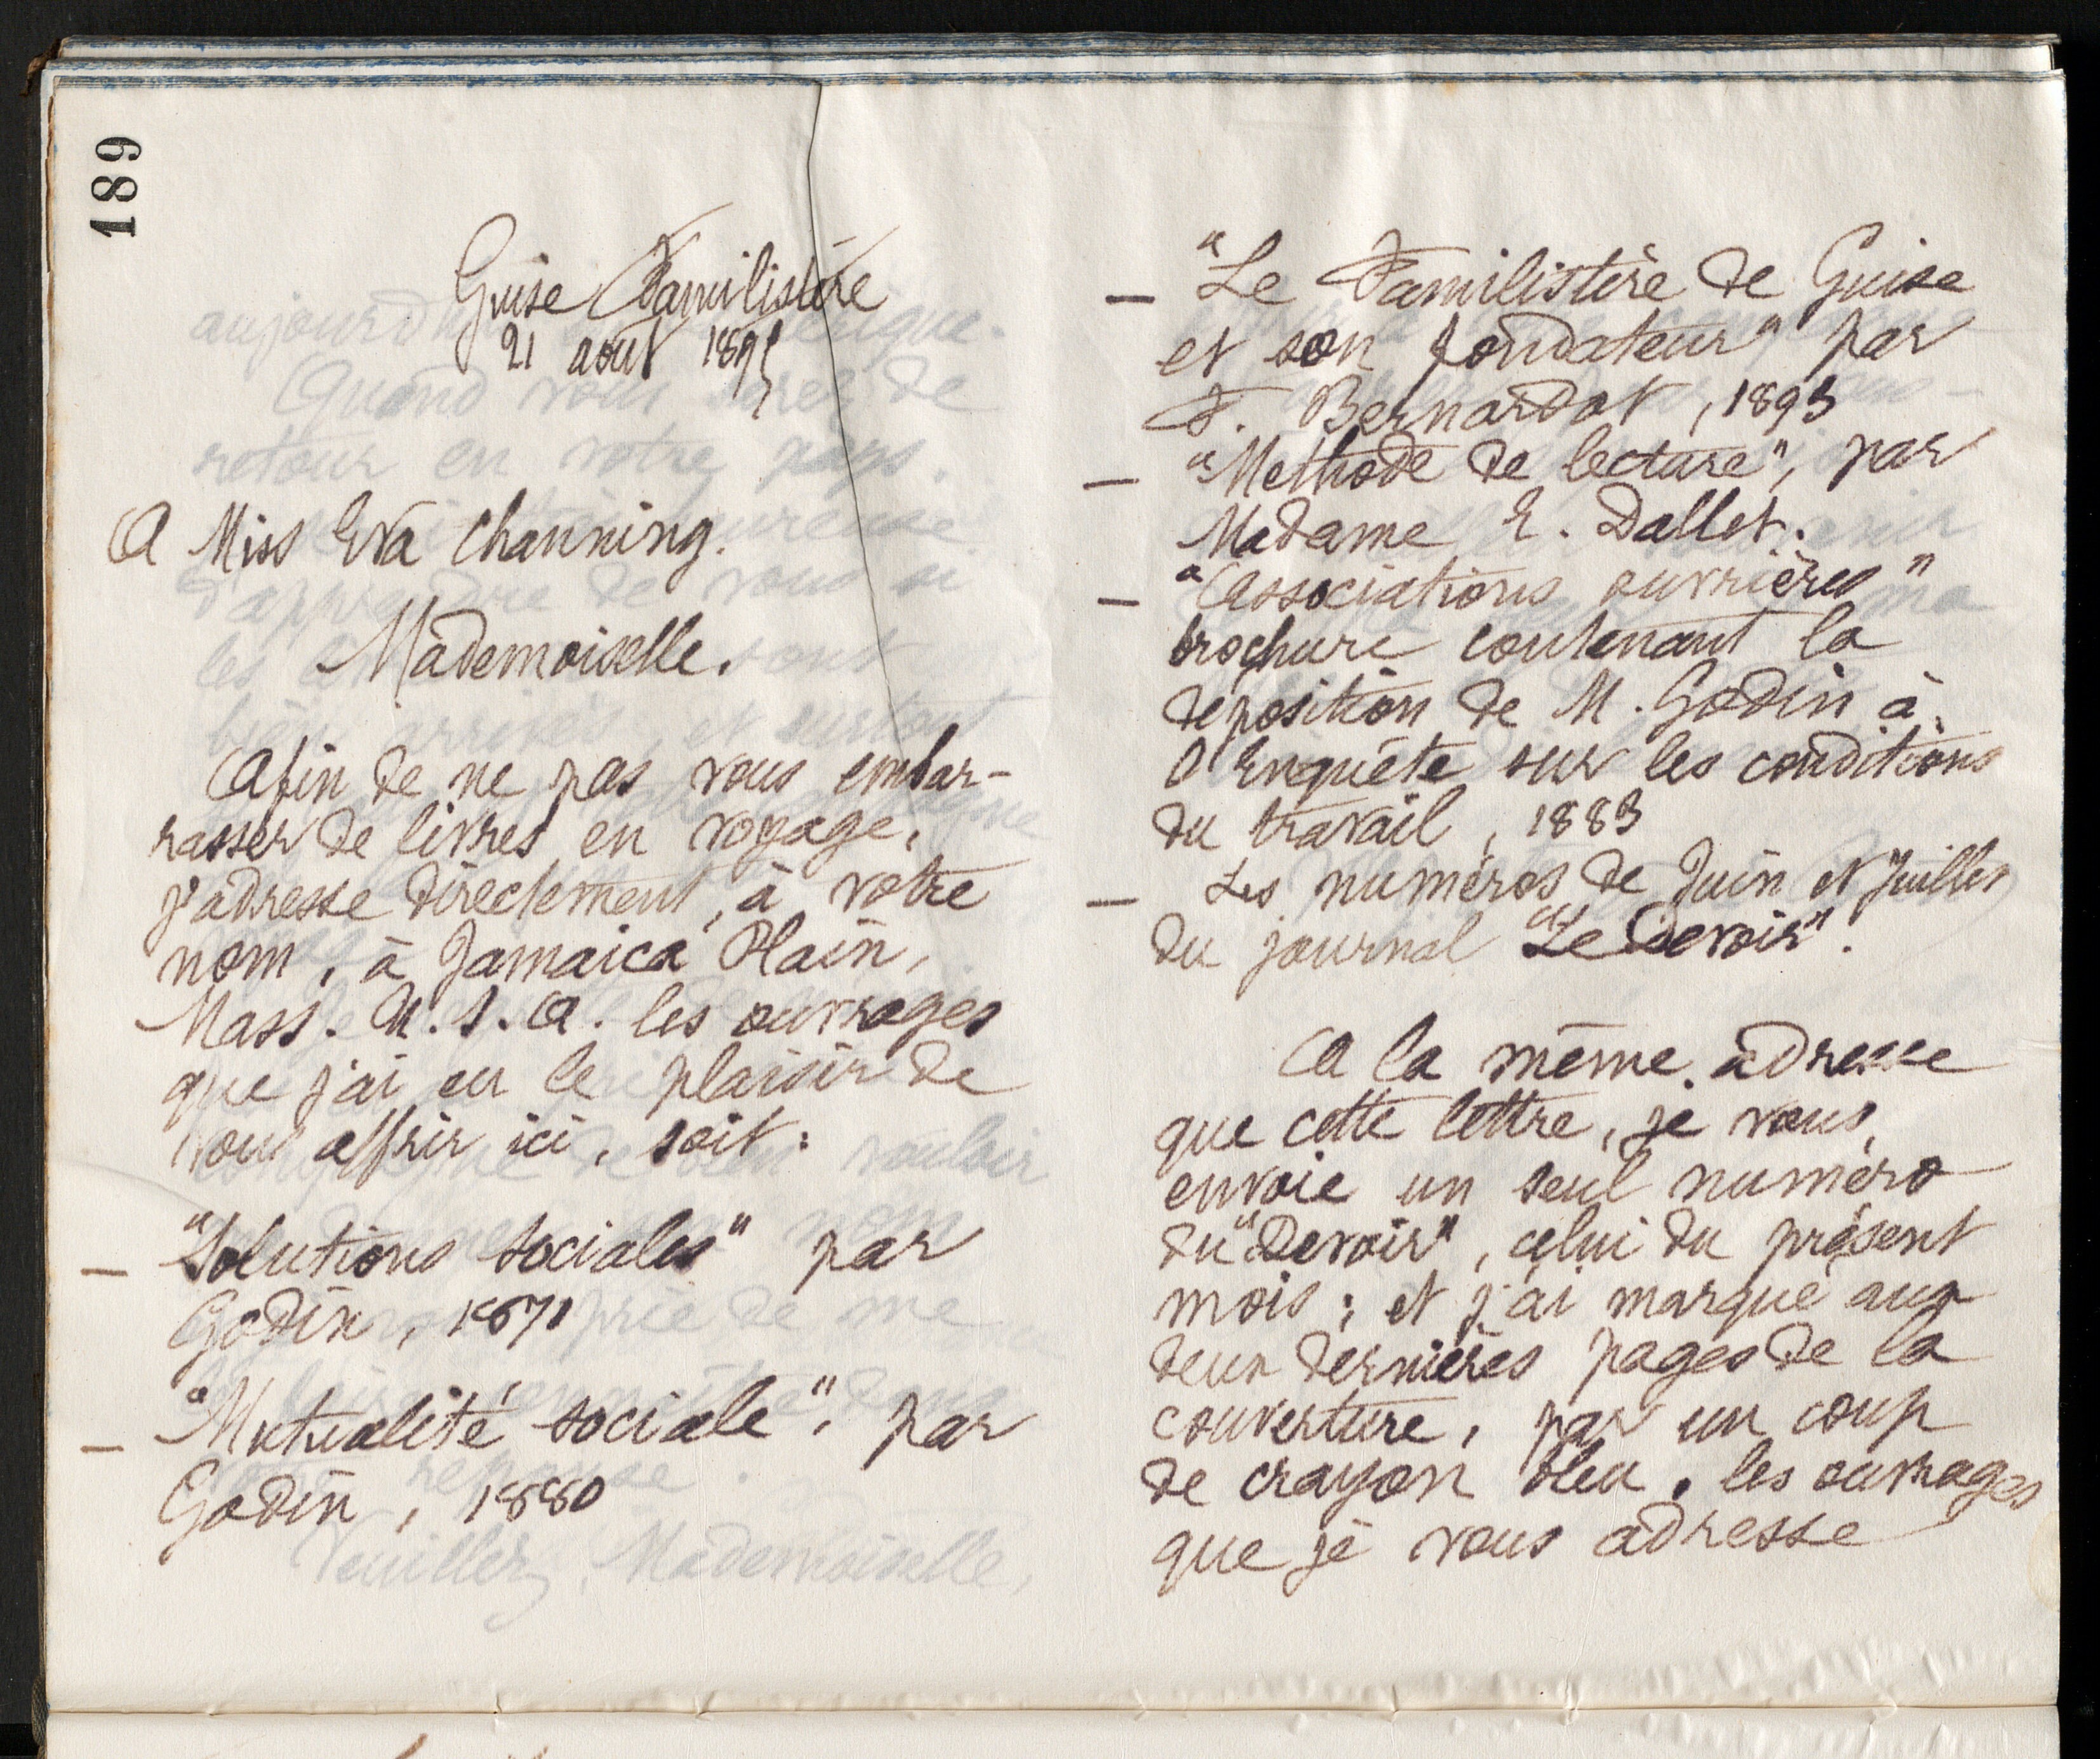 189
Guise Familistère
21 août 1895
A Miss Eva Channing.
Mademoiselle.
Afin de ne pas vous embar-
rasser de livres en voyage,
j'adresse directement, à votre
nom, à Jamaica Plain,
Mass. U.S.A. les ouvrages
que j'ai eu le plaisir de
vous offrir ici, soit:
— "Solutions sociales" par
Godin, 1871
— "Mutualité sociale", par
Godin, 1880
— "Le Familistère de Guise
et son fondateur" par
F. Bernardot, 1893
— "Méthode de lecture", par
Madame E. Dallet.
— "Associations ouvrières"
brochure contenant la
déposition de M. Godin à
l'Enquête sur les conditions
du travail, 1883
— Les numéros de Juin et Juillet
du journal "Le Devoir".
A la même adresse
que cette lettre, je vous
envoie un seul numéro
du "Devoir", celui du présent
mois; et j'ai marqué aux
deux dernières pages de la
couverture, par un coup
de crayon bleu, les ouvrages
que je vous adresse